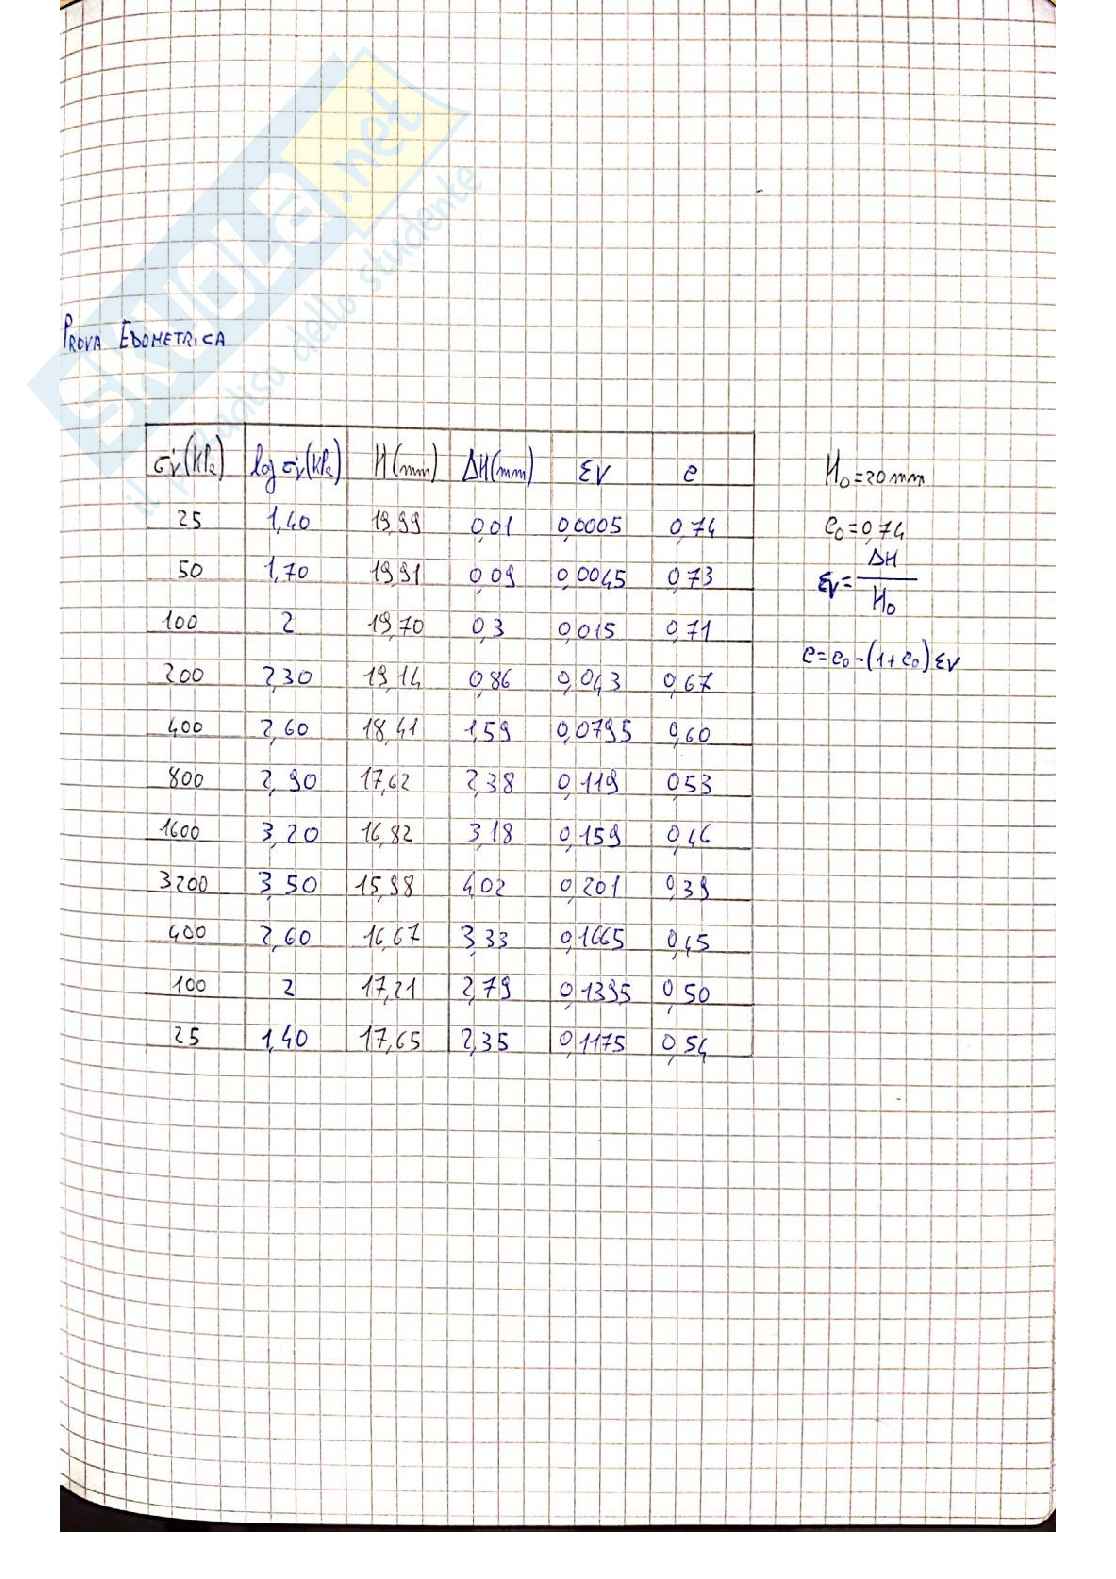 SKUOLA.net
il paradiso dello studente
PROVA EDOMETRICA
σ'v(kPa) log σ'v(kPa) H(mm) ΔH(mm) εv e
25 1,40 19,99 0,01 0,0005 0,74
50 1,70 19,91 0,09 0,0045 0,73
100 2 19,70 0,3 0,015 0,71
200 2,30 19,14 0,86 0,043 0,67
400 2,60 18,41 1,59 0,0795 0,60
800 2,90 17,62 2,38 0,119 0,53
1600 3,20 16,82 3,18 0,159 0,46
3200 3,50 15,98 4,02 0,201 0,39
400 2,60 16,67 3,33 0,1665 0,45
100 2 17,21 2,79 0,1395 0,50
25 1,40 17,65 2,35 0,1175 0,54
H0=20mm
e0=0,74
εv=ΔH/H0
e=e0-(1+e0)εv